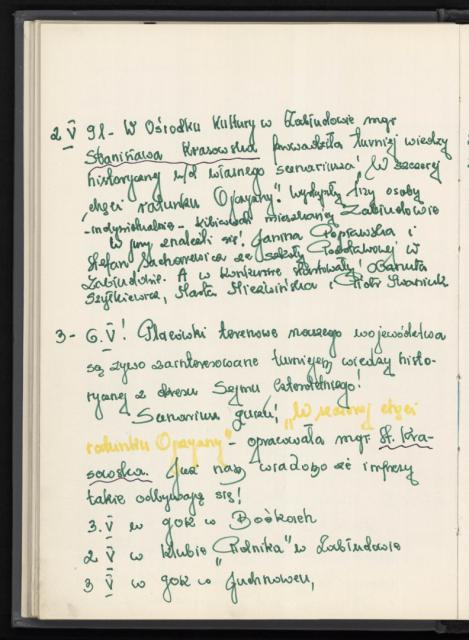 2 V 91 - W Ośrodku Kultury w Zabłudowie mgr
Stanisława Krasowska prowadziła turniej wiedzy
historycznej w/d własnego scenariusza! „W szczerej
chęci ratunku Ojczyzny". Wystąpiły trzy osoby
-indywidualnie- mieszkańcy Zabłudowa
W jury znaleźli się: Janina Popławska i
Stefan ze szkoły Podstawowej w
Zabłudowie. A w konkursie startowały: Danuta
Marta i Piotr Iwaniuk
3 - 6. V! Placówki terenowe naszego województwa
są żywo zainteresowane turniejem wiedzy histo-
rycznej z okresu Sejmu Czteroletniego!
Scenariusz quizu! „W szczerej chęci
ratunku Ojczyzny" - opracowała mgr St. Kra-
sowska. Już nam wiadomo że imprezy
takie odbywają się!
3. V w gok w Boćkach
2 V w klubie „Rolnika" w Zabłudowie
3 V w gok w Juchnowcu,